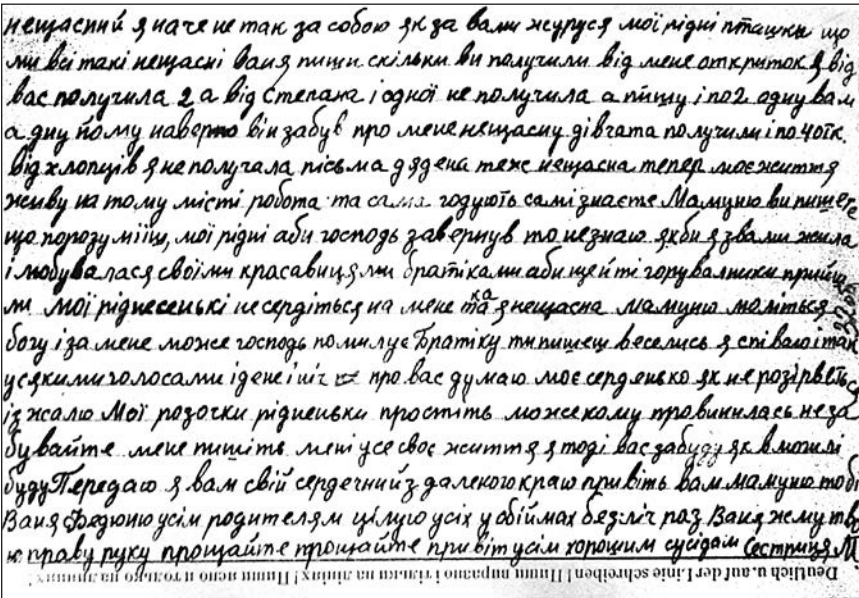 нещасний я наче не так за собою як за вами журуся мої рідні пташки що
ми всі такі нещасні Ваня пиши скільки ви получили від мене открито́к я від
вас получила 2 а від Степана і одної не получила а пишу і по 2 одну вам
а дну йому наверно він забув про мене нещасну дівчата получили і по 4 отк.
від хлопців я не получала пісьма дядена теж нещасна тепер моє життя
живу на тому місті робота та сама годують самі знаєте Мамуню ви пишете
що порозумііш, мої рідні аби господь завернув то незнаю якби я з вами жила
і любувалася своїми красавицями братіками аби ще й ті горувальники прийш
ли мої ріднесенькі не сердіться на мене така я нещасна мамуню моліться
богу і за мене може господь помилує Братіку ти пишеш веселись я співаю і так
усякими голосами і дене і ніч про вас думаю моє серденько як не розірветься
із жалю Мої розочки рідненьки простіть може кому провинилась не за
бувайте мене пишіть мені усе своє життя я тоді вас забуду як в могилі
буду Передаю я вам свій сердечний з далекого краю привіть вам мамуню тобі
Ваня Федюню усім родителям цілую усіх у обіймах безліч раз Ваня жму тв
ю праву руку прощайте прощайте привіт усім хорошим сусідам Сестриця М
Deutlich u. auf der Linie schreiben! Пиши виразно і тільки на лініях! Пиши ясно и только на линиях!